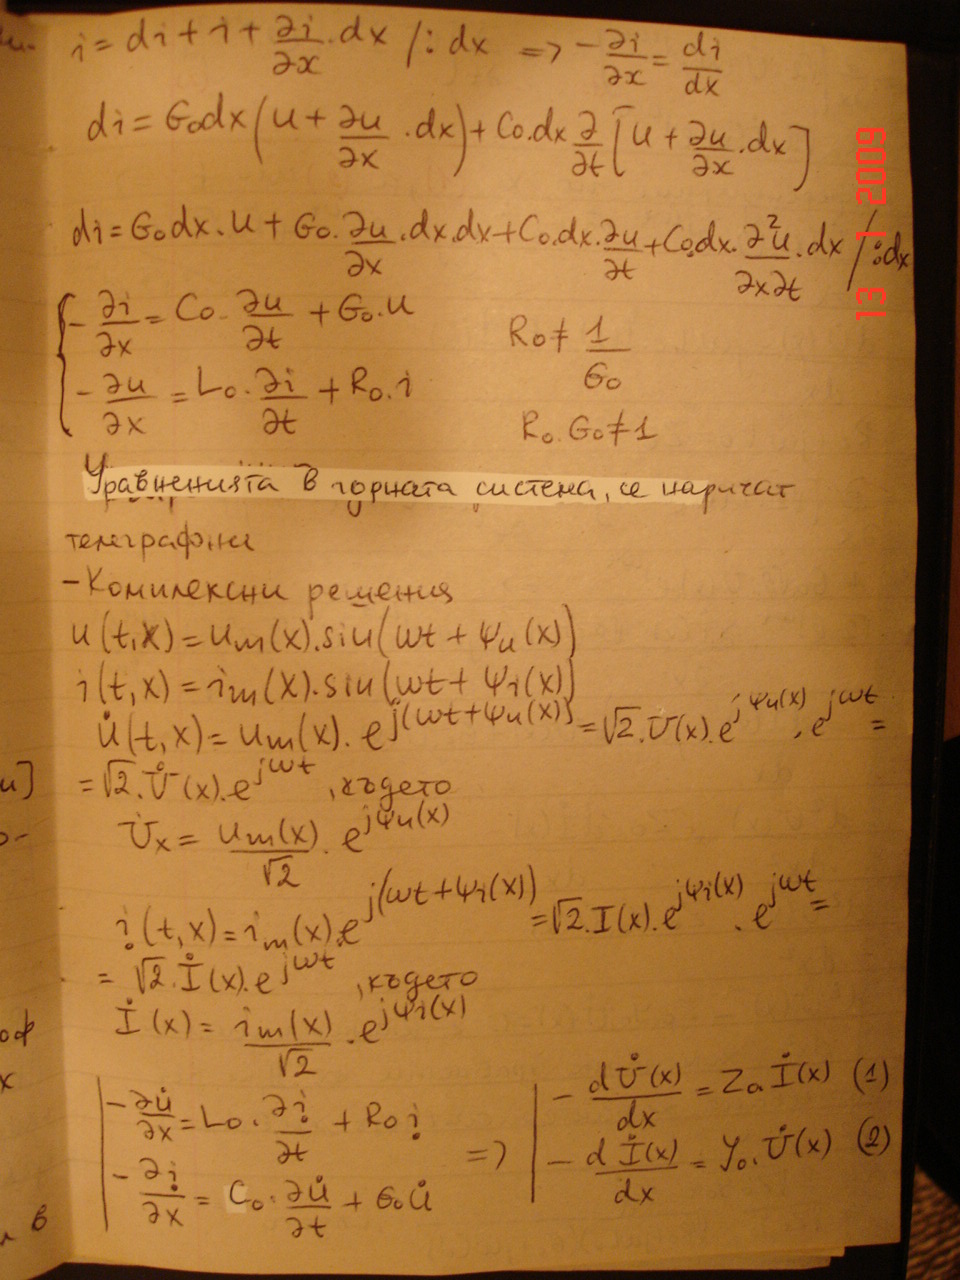 i = di + i + ∂i/∂x . dx /: dx => -∂i/∂x = di/dx
di = G₀dx(u + ∂u/∂x . dx) + C₀.dx ∂/∂t [u + ∂u/∂x . dx]
di = G₀dx.u + G₀.∂u/∂x.dx.dx + C₀.dx.∂u/∂t + C₀dx.∂²u/∂x∂t.dx /:dx
{ -∂i/∂x = C₀.∂u/∂t + G₀.u
R₀ ≠ 1/G₀
-∂u/∂x = L₀.∂i/∂t + R₀.i
R₀.G₀ ≠ 1
Уравненията в горната система, се наричат
телеграфни
- Комплексни решения
u(t,x) = uₘ(x).sin(ωt + ψᵤ(x))
i(t,x) = iₘ(x).sin(ωt + ψᵢ(x))
u̇(t,x) = uₘ(x).e^j(ωt+ψᵤ(x)) = √2.U(x).e^jψᵤ(x).e^jωt =
= √2.U̇(x).e^jωt, където
U̇x = uₘ(x)/√2 . e^jψᵤ(x)
ị(t,x) = iₘ(x).e^j(ωt+ψᵢ(x)) = √2.I(x).e^jψᵢ(x).e^jωt =
= √2.İ(x).e^jωt, където
İ(x) = iₘ(x)/√2 . e^jψᵢ(x)
| -∂u̇/∂x = L₀.∂ị/∂t + R₀ị
=> | -dU̇(x)/dx = Z₀İ(x) (1)
-∂ị/∂x = C₀.∂u̇/∂t + G₀u̇
-dİ(x)/dx = Y₀.U̇(x) (2)
13 1 2009